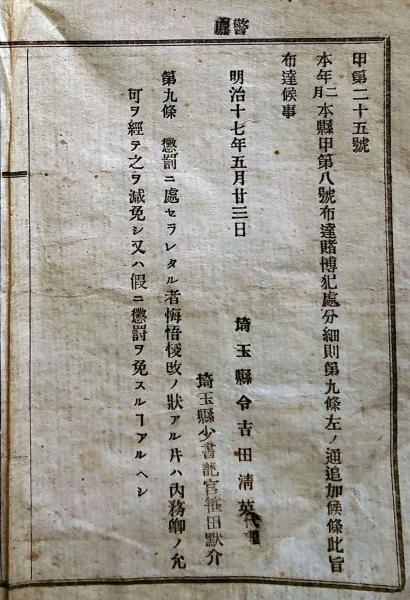 警
甲第二十五號
本年二月本縣甲第八號布達賭博犯處分細則第九條左ノ通追加候條此旨
布達候事
明治十七年五月廿三日
埼玉縣令吉田清英代理
埼玉縣少書記官笹田默介
第九條　懲罰ニ處セラレタル者悔悟悛改ノ狀アル片ハ內務卿ノ允
可ヲ經テ之ヲ減免シ又ハ假ニ懲罰ヲ免スルヿアルヘシ